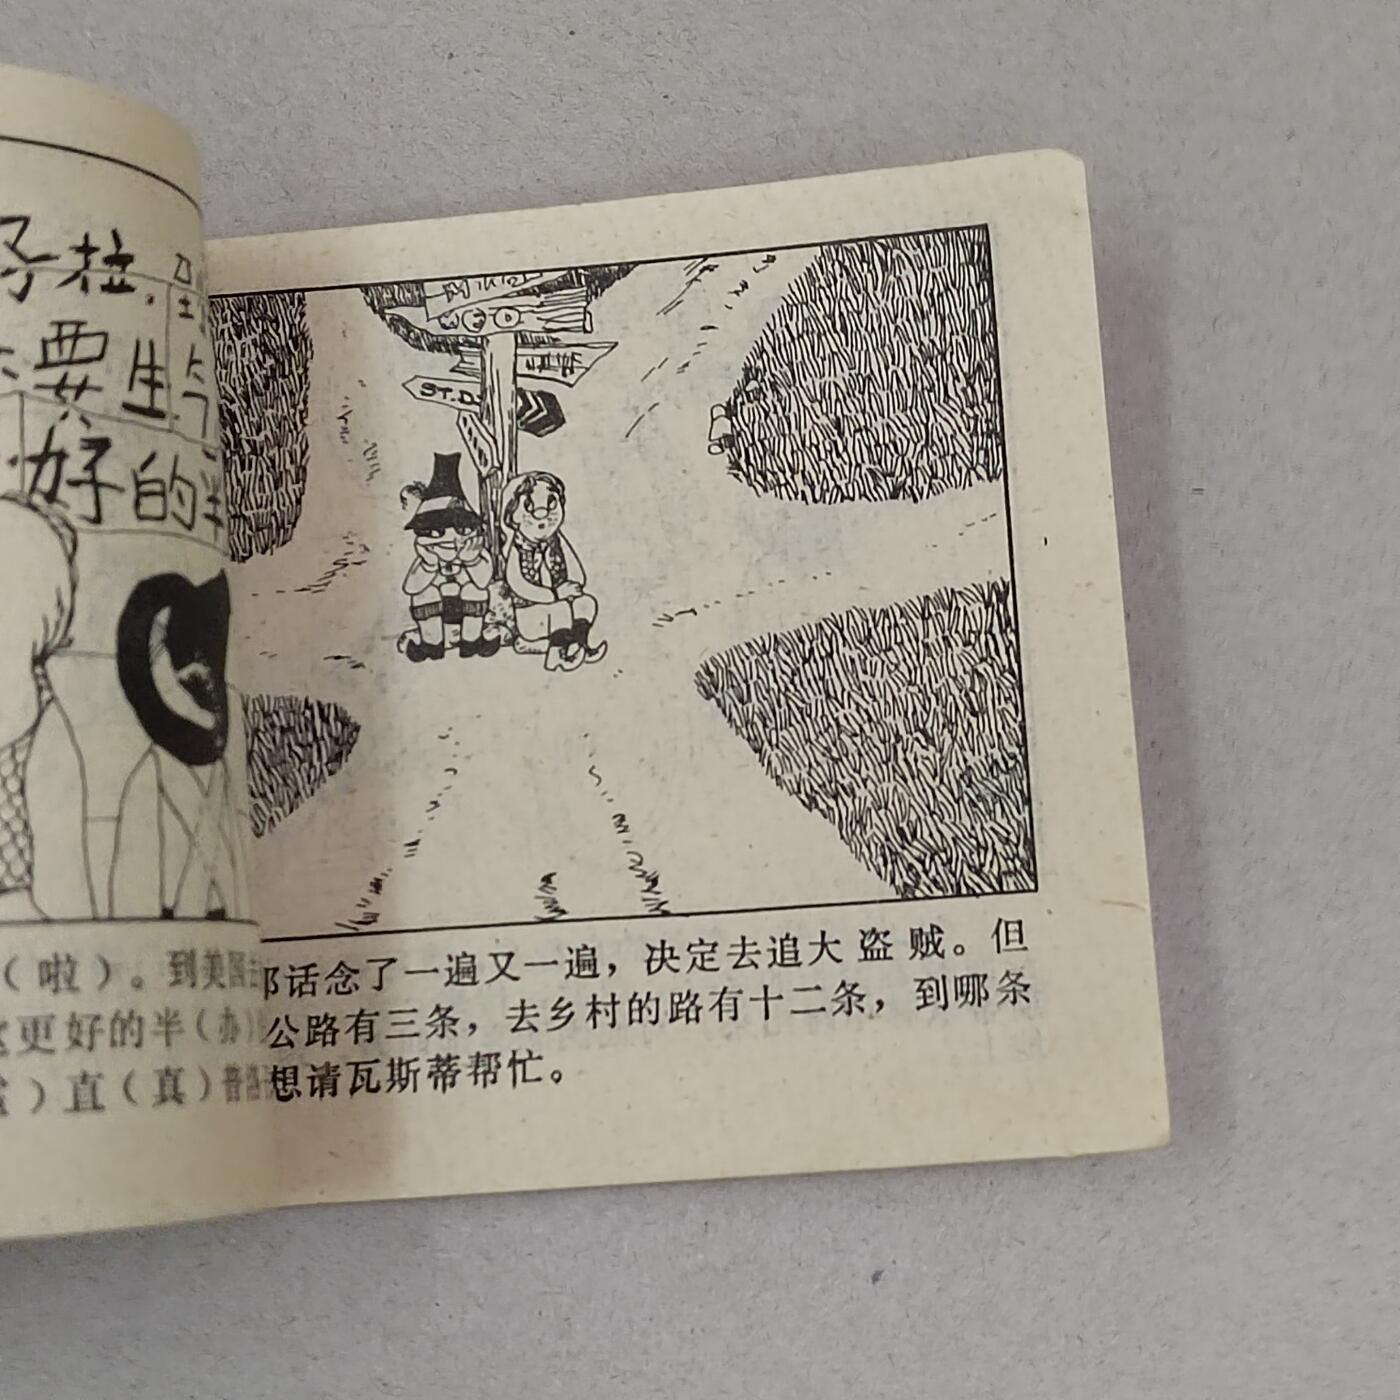 子粒,
要生气
好的半
（啦）。到美国
更好的半（办
）直（真）普
ST.D
话念了一遍又一遍，决定去追大盗贼。但
公路有三条，去乡村的路有十二条，到哪条
想请瓦斯蒂帮忙。